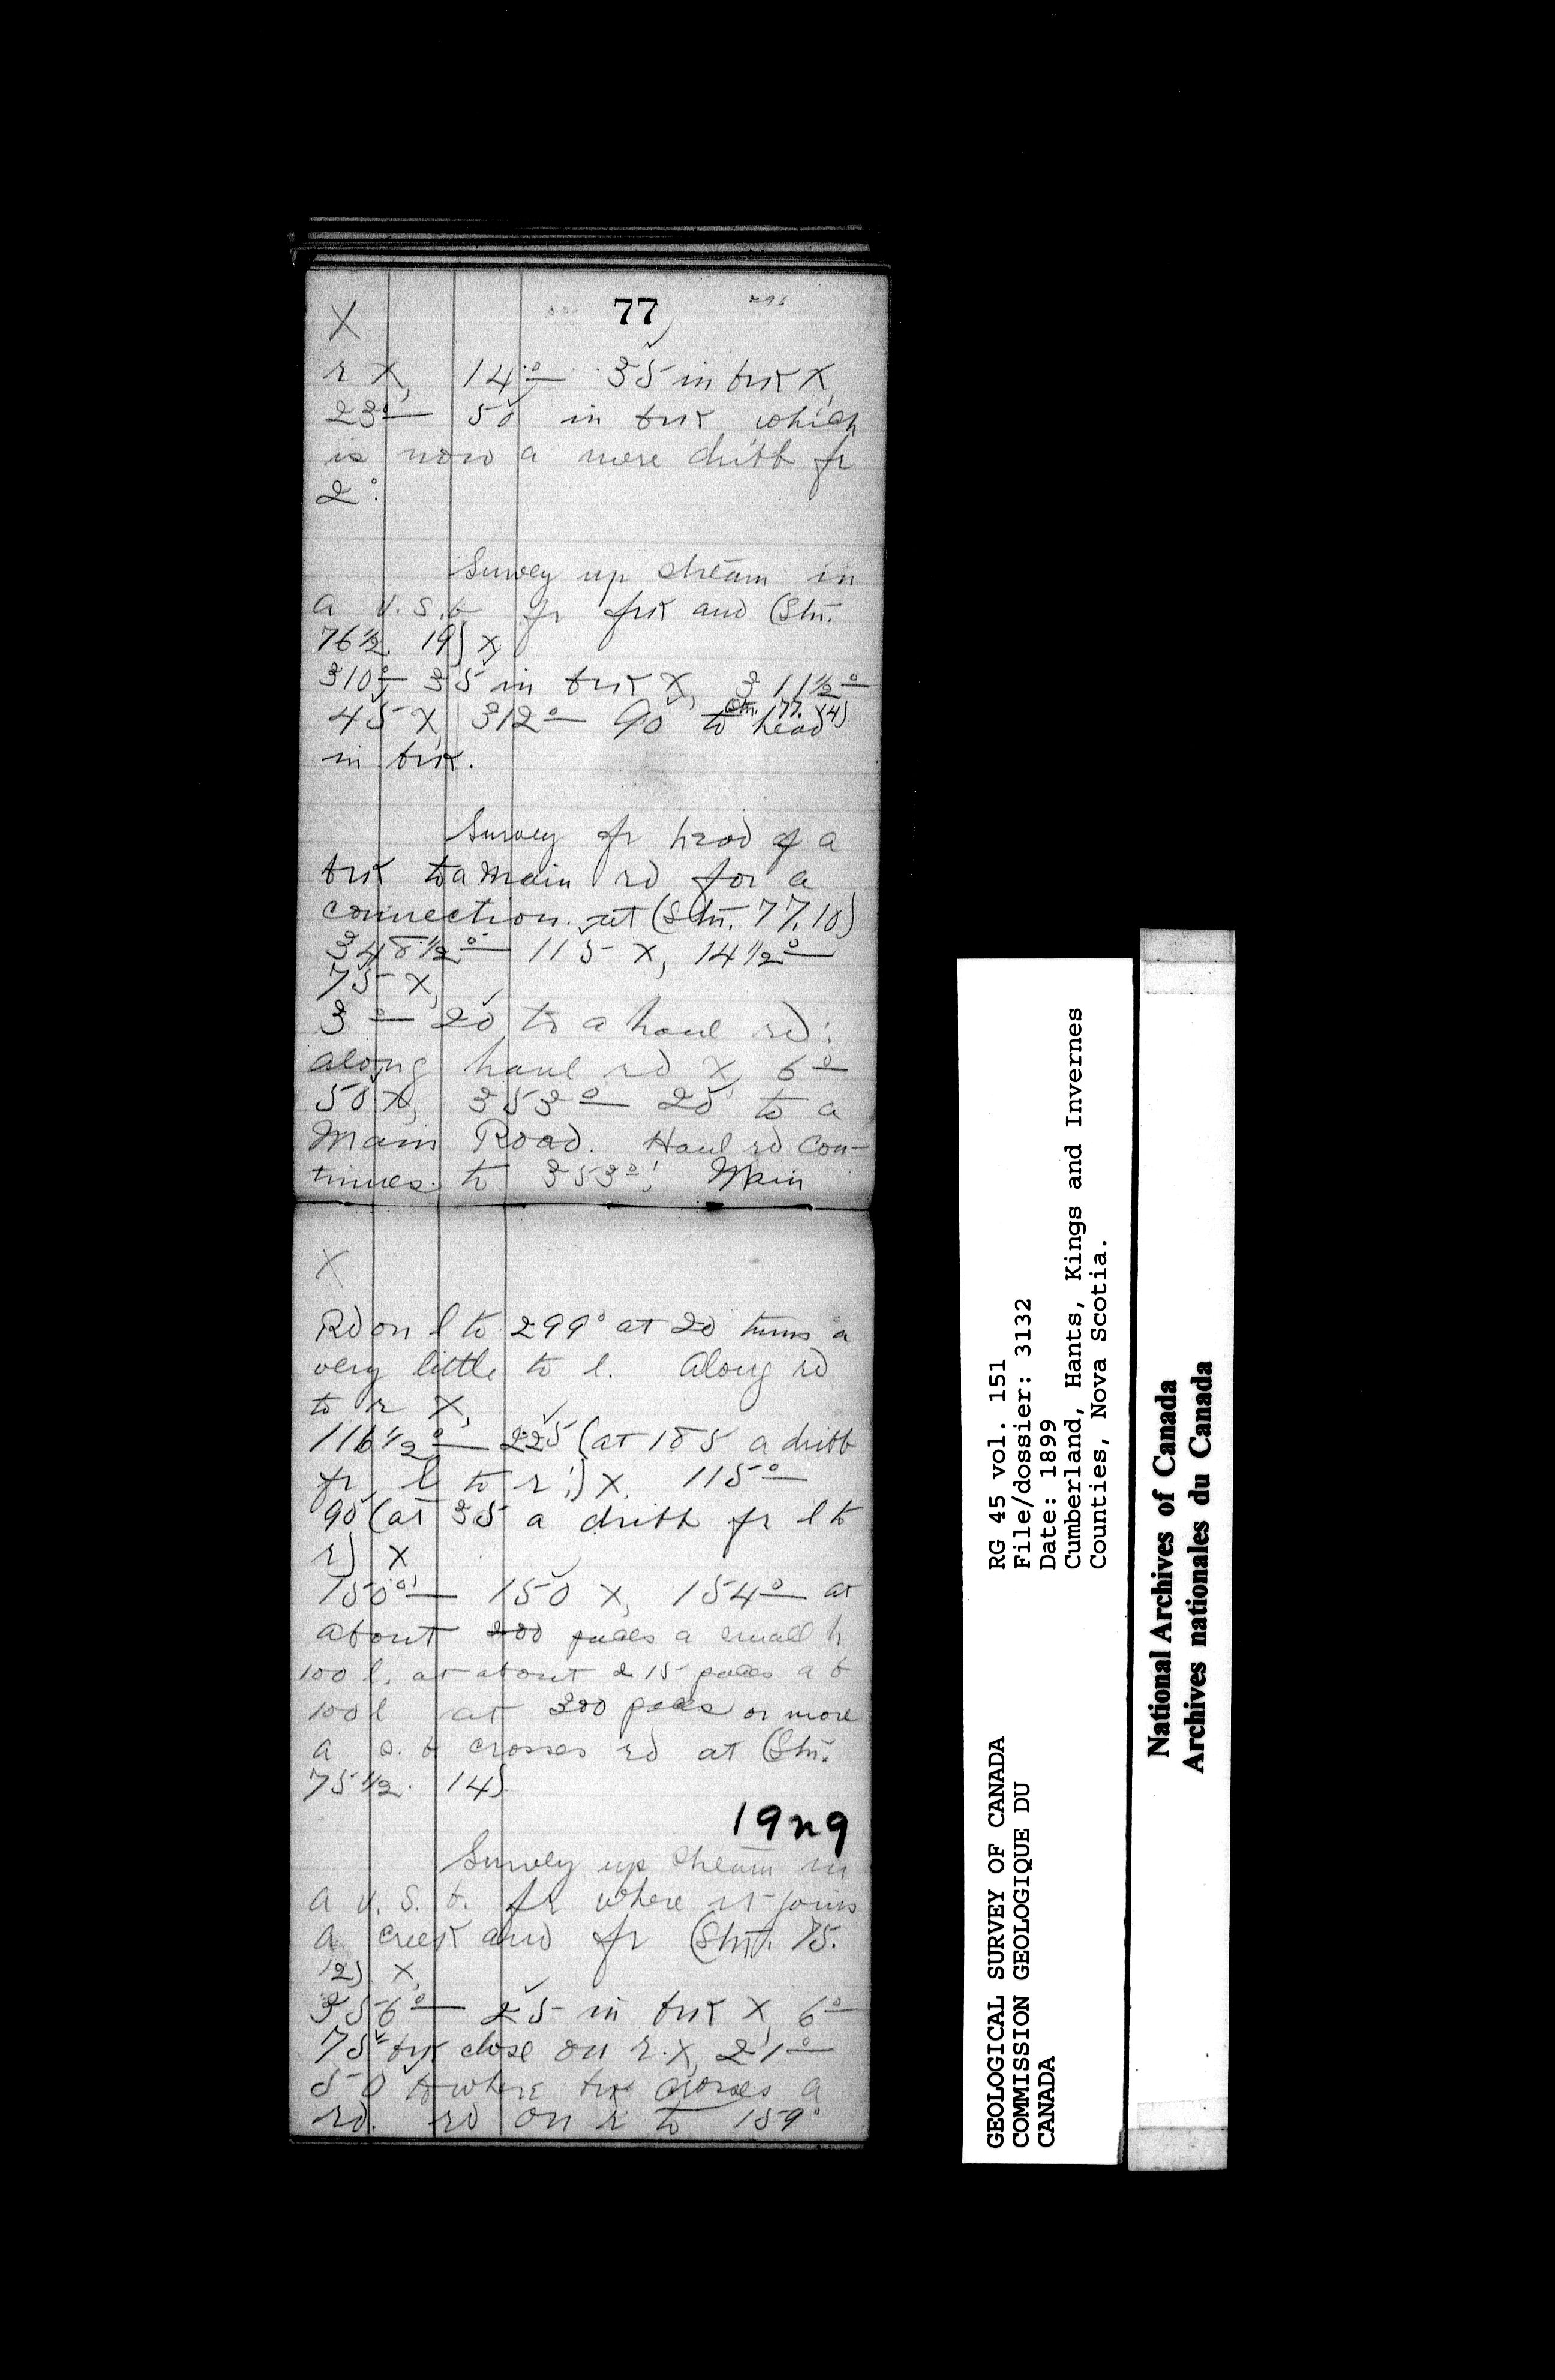 77
X
r X, 14° — 35 in brk X,
23° — 50 in brk which
is now a mere dribb fr
2°.
Survey up stream in
a v.s.b fr frk and (Stn.
76½. 19) X,
310° — 35 in brk X, 311½° —
45 X, 312° — 90 to head (Stn. 77. 4)
in brk.
Survey fr head of a
brk to a main rd for a
connection at (Stn. 77. 10)
348½° — 115 X, 14½° —
75 X,
3° — 20 to a haul rd;
along haul rd X, 6° —
50 X, 353° — 20 to a
Main Road. Haul rd con-
tinues to 353°; Main
X
Rd on l to 299° at 20 turns a
very little to l. Along rd
to r X,
116½° — 225 (at 185 a dribb
fr l to r;) X, 115° —
90 (at 35 a dribb fr l to
r) X
150° — 150 X, 154° — at
about 200 paces a small h
100 l, at about 215 paces a b
100 l at 300 paces or more
a s. b crosses rd at (Stn.
75½. 14)
1929
Survey up stream in
a v. s. b. fr where it joins
a creek and fr (Stn. 75.
12) X,
356° — 25 in brk X, 6° —
75 brk close on r. X, 21° —
50 to where brk crosses a
rd. rd on r to 159°
RG 45 vol. 151
File/dossier: 3132
Date: 1899
Cumberland, Hants, Kings and Invernes
Counties, Nova Scotia.
GEOLOGICAL SURVEY OF CANADA
COMMISSION GEOLOGIQUE DU
CANADA
National Archives of Canada
Archives nationales du Canada